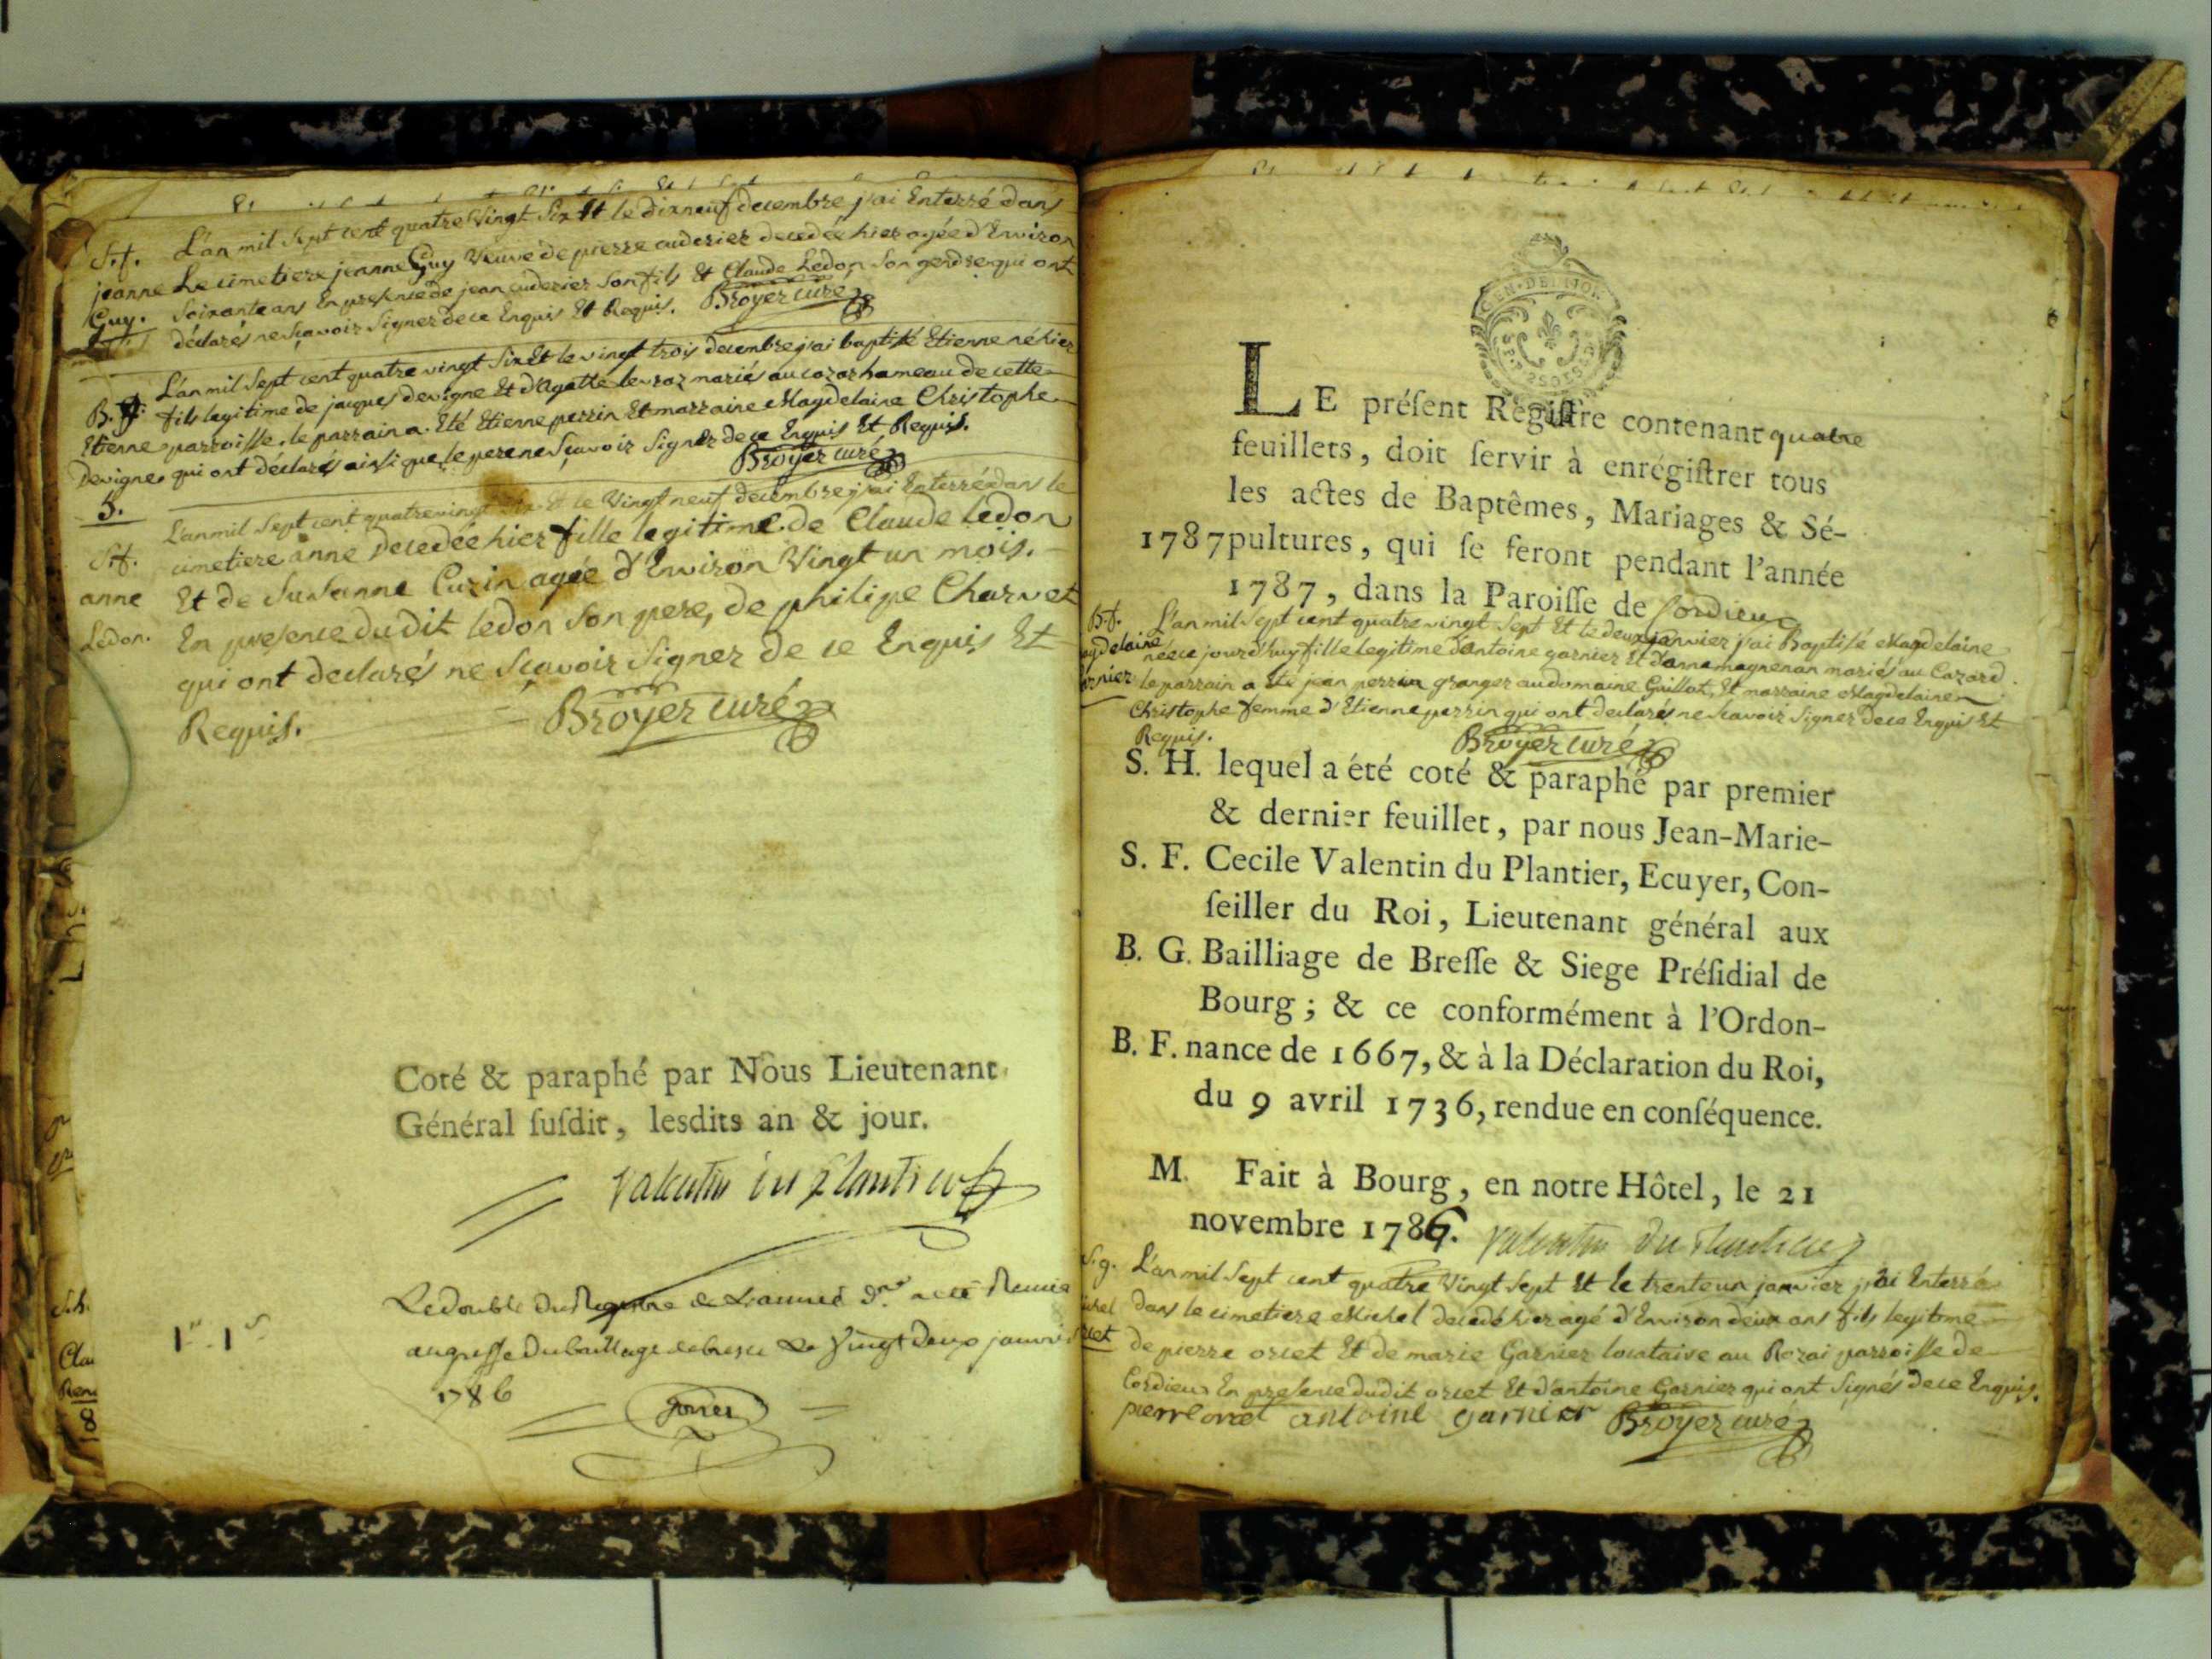 S.f. L'an mil Sept cent quatre Vingt Six Et le dixneuf decembre j'ai Enterré dans
jeanne Le cimetiere jeanne Guy Veuve de pierre cuderier decedée hier agée d'Environ
Guy. Soixante ans En presence de jean cuderier Son fils Et Claude Ledon Son gendre qui ont
déclarés ne Scavoir Signer de ce Enquis Et Requis. Broyer curé
L'an mil Sept cent quatre vingt Six Et le vingt trois decembre j'ai baptisé Etienne né hier
B. g. fils legitime de jacques devigne Et d'Agathe levraz mariés au cozar hameau de cette
Etienne parroisse. le parrain a Eté Etienne perrin Et marraine Magdelaine Christophe
Devigne qui ont déclarés ainsi que le pere ne Scavoir Signer de ce Enquis Et Requis.
Broyer curé
5. L'an mil Sept cent quatre vingt Six Et le Vingt neuf decembre j'ai Enterré dans le
S.f. cimetiere anne Decedée hier fille legitime de Claude Ledon
anne Et de Susanne Curin agée d'Environ Vingt un mois.
Ledon. En presence dudit ledon Son pere, de philipe Charvet
qui ont declarés ne Scavoir Signer de ce Enquis Et
Requis. Broyer curé
Coté & paraphé par Nous Lieutenant
Général susdit, lesdits an & jour.
Valentin du Plantier
Le double du Registre de L'année d.re a été Remis
au greffe du bailliage de bresse Le Vingt Deux janvier
1786
S.h.
8
GEN. DE DIJON
LE présent Régistre contenant quatre
feuillets, doit servir à enrégistrer tous
les actes de Baptêmes, Mariages & Sé-
1787 pultures, qui se feront pendant l'année
1787, dans la Paroisse de Cordieux
B.f. L'an mil Sept cent quatre vingt Sept Et le deux janvier j'ai Baptisé Magdelaine
agdelaine née ce jourd'huy fille legitime d'antoine garnier Et d'anne magnenan mariés au Cazard.
arnier le parrain a Eté jean perrin granger au domaine Guillot, Et marraine Magdelaine
Christophe femme d'Etienne perrin qui ont declarés ne Scavoir Signer de ce Enquis Et
Requis. Broyer curé
S. H. lequel a été coté & paraphé par premier
& dernier feuillet, par nous Jean-Marie-
S. F. Cecile Valentin du Plantier, Ecuyer, Con-
seiller du Roi, Lieutenant général aux
B. G. Bailliage de Bresse & Siege Présidial de
Bourg; & ce conformément à l'Ordon-
B. F. nance de 1667, & à la Déclaration du Roi,
du 9 avril 1736, rendue en conséquence.
M. Fait à Bourg, en notre Hôtel, le 21
novembre 1786. Valentin du Plantier
S.g. L'an mil Sept cent quatre Vingt Sept Et le trente un janvier j'ai Enterré
dans le cimetiere Michel decedé hier agé d'Environ deux ans fils legitime
de pierre orcet Et de marie Garnier locataire au Rozai parroisse de
Cordieux En presence dudit orcet Et d'antoine Garnier qui ont Signés de ce Enquis.
pierre orcet antoine garnier Broyer curé